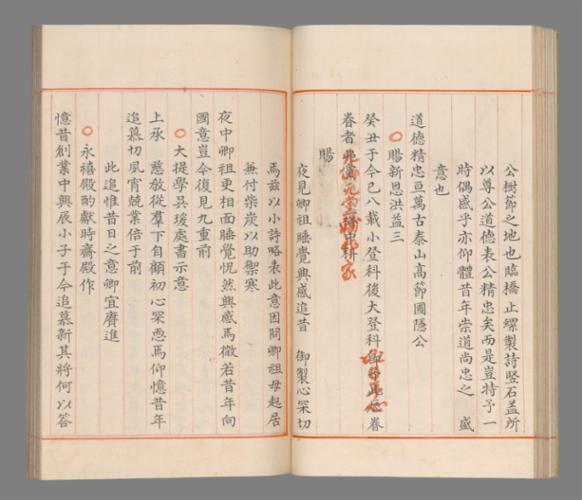 公樹節之地也臨橋 製詩竪石盖所
以尊公道德表公精忠矣而是豈特予一
時偶感乎亦仰體昔年崇道尚忠之 盛
意也
道德精忠亘萬古泰山高節圃隱公
○賜新恩洪益三
癸丑于今已八載小登科後大登科 眷
眷者
賜
夜見卿祖睡覺興感追昔 御製心罙切
焉玆以小詩略表此意因問卿祖母起居
兼付柴炭以助禦寒
夜中卿祖更相面睡覺怳然興感焉微若昔年向
國意豈令復見九重前
○大提學吳瑗處書示意
上承 慈教從羣下自顧初心罙恧焉仰憶昔年
追慕切夙宵兢業倍于前
此追惟昔日之意卿宜賡進
○永禧殿酌獻時齋殿作
憶昔創業中興辰小子于今追慕新其將何以答